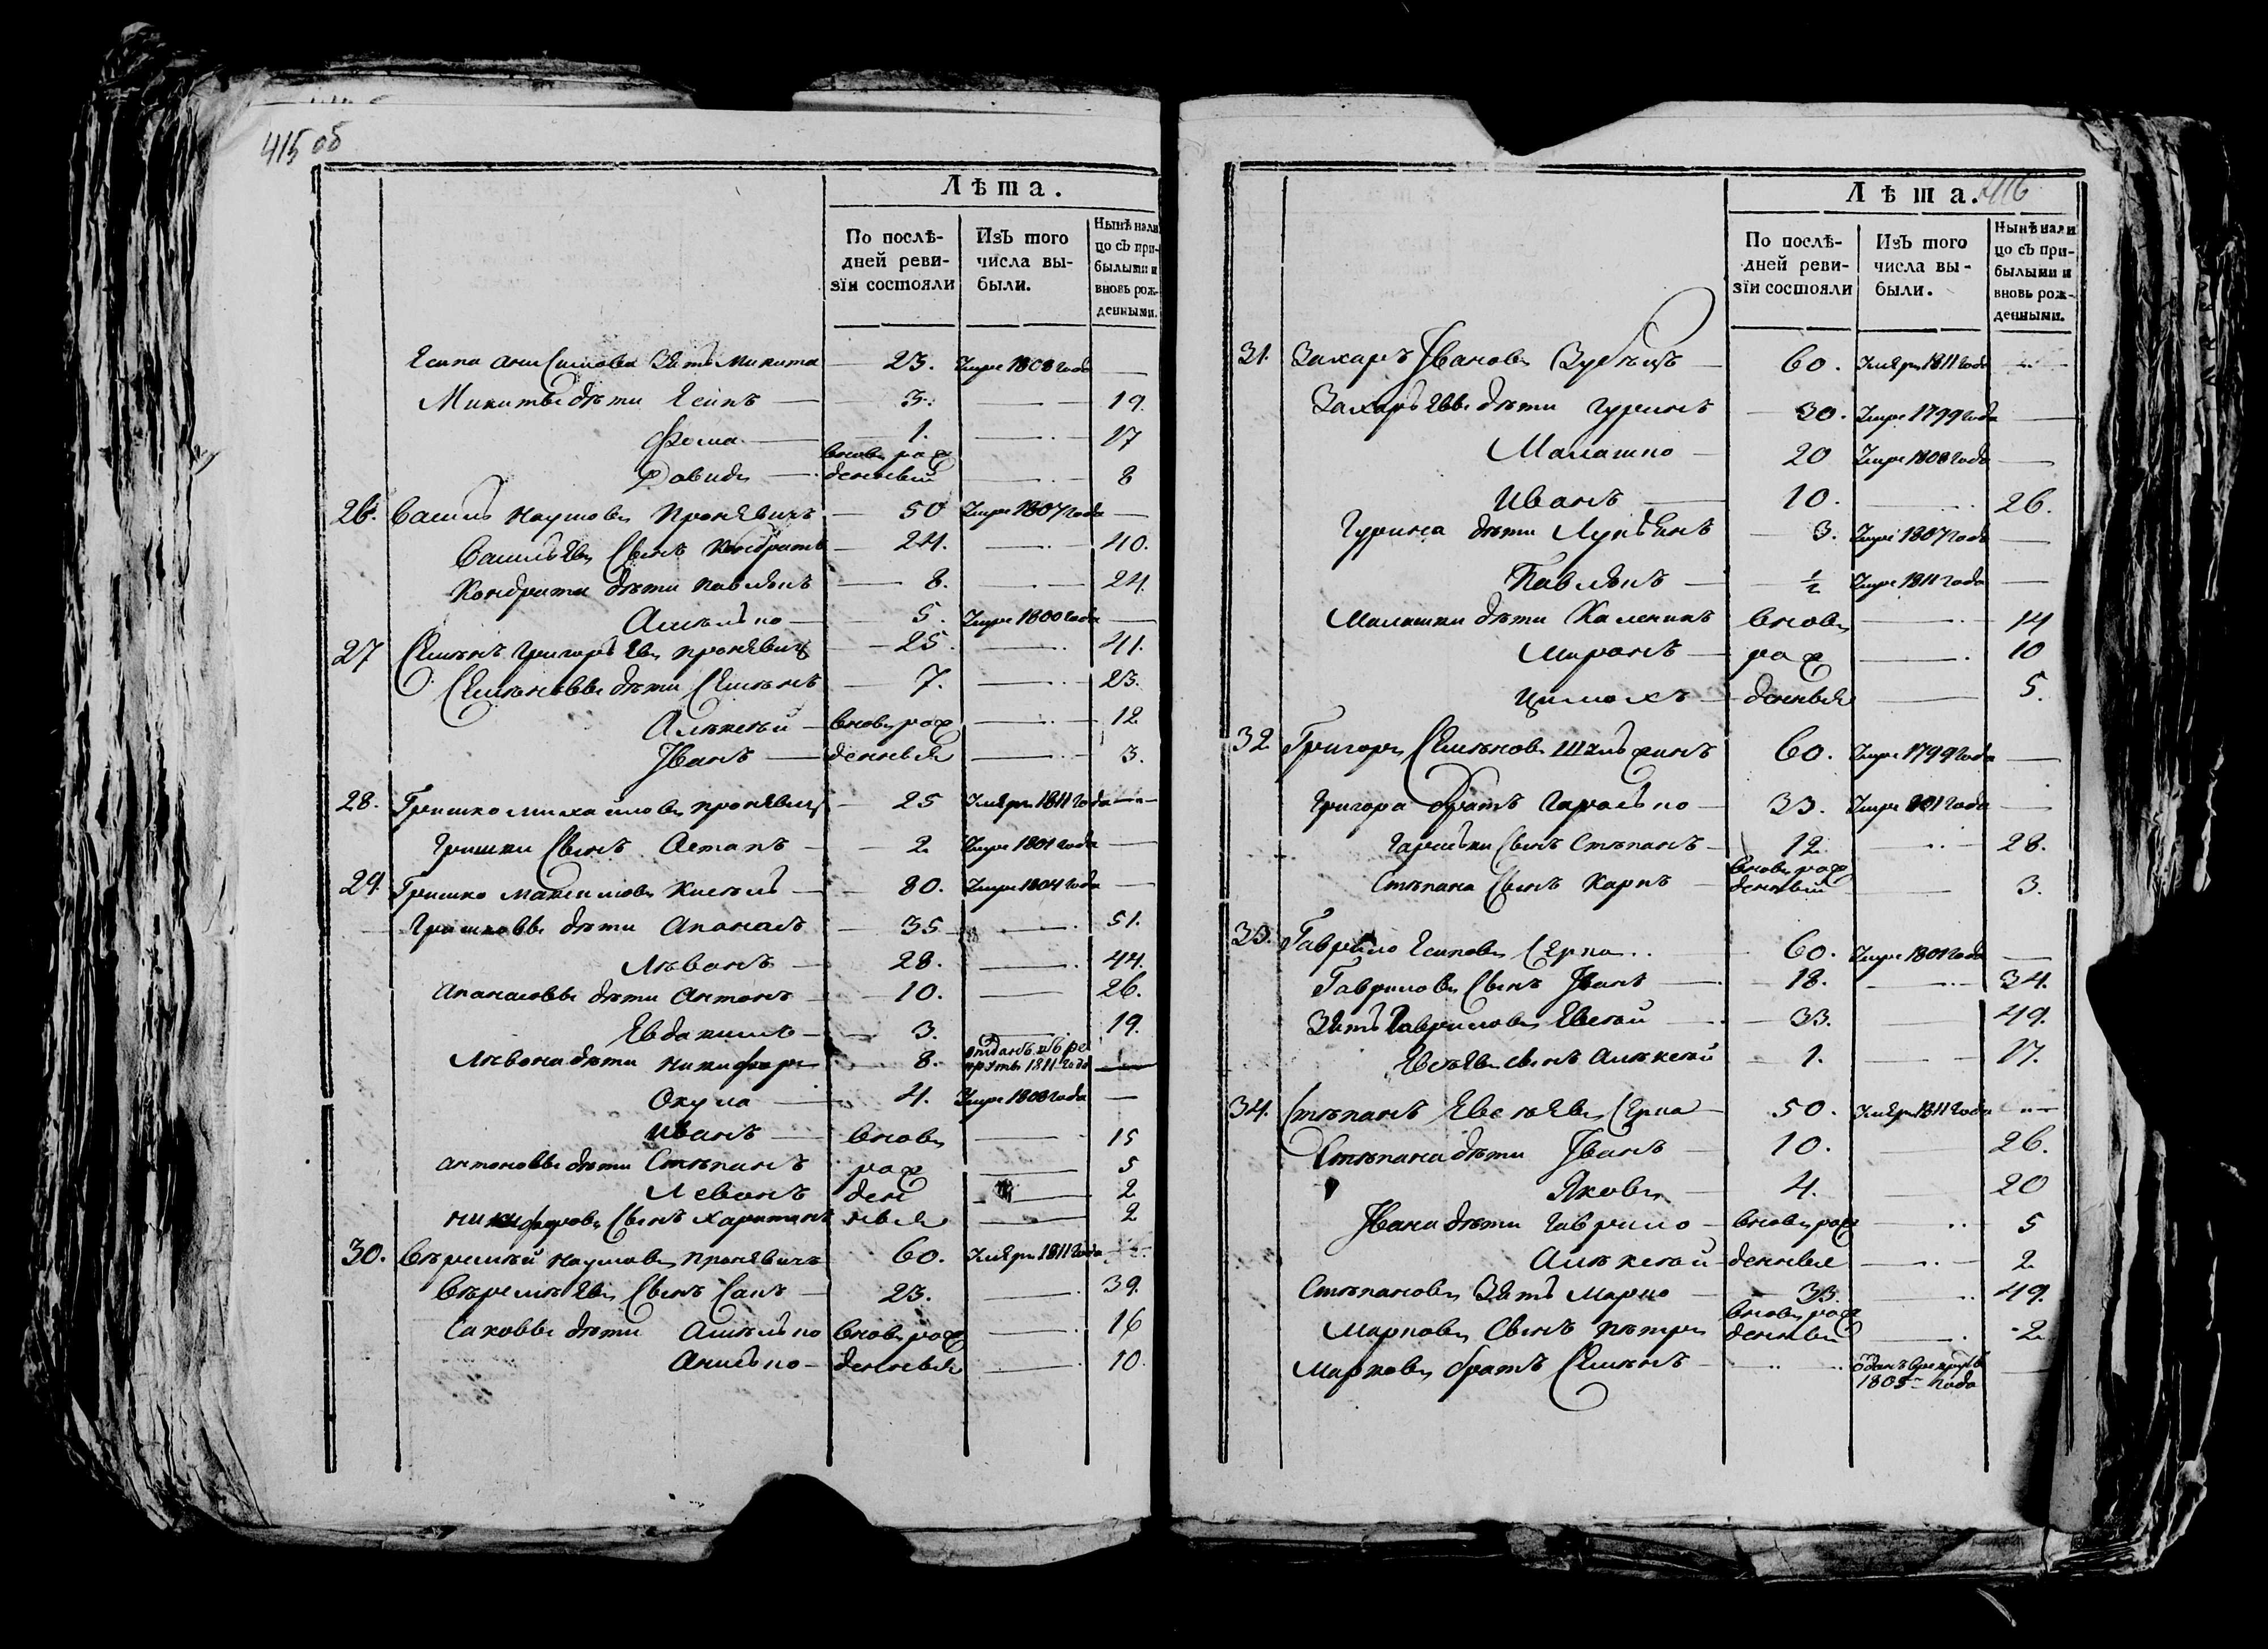 415 об
Лѣта.
По послѣ-
дней реви-
зіи состояли
Изъ того
числа вы-
были.
Нынѣ нали
цо съ при-
былыми и
вновь рож-
денными.
Есипа Анисимова Зять Микита — 23. Умре 1808 года —
Микитые дѣти Есипъ — 3. — 19.
Фома — 1. — 17
вновь рож
Давидъ — денный — 8
26. Василь Наумовъ Проневичъ — 50 Умре 1807 года —
Васильевъ Сынъ Кондратъ — 24. — 40.
Кондрата дѣти Павлюкъ — 8. — 24.
Амелько — 5. Умре 1800 года —
27 Семенъ Григорьевъ Проневичъ — 25. — 41.
Семеновы дѣти Семенъ — 7. — 23.
Алексей — вновь рож — 12
Иванъ — денныя — 3.
28. Гришко Михайловъ Проневичъ — 25 Умеръ 1811 года —
Гришки Сынъ Астапъ — 2 Умре 1801 года —
29. Гришко Максимовъ Кисель — 80. Умре 1804 года —
Гришковы дѣти Апанасъ — 35 — 51.
Леванъ — 28. — 44.
Апанасовы дѣти Антонъ — 10. — 26.
Евдакимъ — 3. — 19.
Левона дѣти Никифоръ — 8. отданъ въ ре
круты 1811 года —
Окула — 4. Умре 1808 года —
Иванъ — вновь — 15
Антоновы дѣти Степанъ рож — 5
Леванъ ден — 2
Никифоровъ Сынъ Харитонъ ныя — 2
30. Веремей Наумовъ Проневичъ 60. Умеръ 1811 года
Веремеевъ Сынъ Сакъ — 23. — 39.
Саковы дѣти Амелько вновь рож — 16
Анисько — денныя — 10.
416
Лѣта.
По послѣ-
дней реви-
зіи состояли
Изъ того
числа вы-
были.
Нынѣ нали
цо съ при-
былыми и
вновь рож-
денными.
31. Захаръ Ивановъ Зубѣцъ — 60. Умеръ 1811 года —
Захарьевы дѣти Гуринъ — 30. Умре 1799 года —
Малашко — 20 Умре 1808 года —
Иванъ — 10. — 26.
Гурина дѣти Лукьянъ — 3. Умре 1807 года —
Павлюкъ — 1/2 Умре 1811 года —
Малашки дѣти Каленикъ вновь — 14
Миронъ — рож — 10
Цимохъ — денныя — 5.
32 Григоръ Семеновъ 60. Умре 1799 года —
Григора братъ Гарасько — 33. Умре 801 года —
Гараськи Сынъ Степанъ — 12. — 28.
вновь рож
Степана Сынъ Карпъ — денный — 3.
33. Гаврило Есиповъ Серпа — 60. Умре 1801 года —
Гавриловъ Сынъ Иванъ — 18. — 34.
Зять Гавриловъ Евсей — 33. — 49.
Евсеевъ сынъ Алексей — 1. — 17.
34. Степанъ Евсеевъ Серпа — 50. Умеръ 1811 года —
Степана дѣти Иванъ — 10. — 26.
Яковъ — 4. — 20
Ивана дѣти Гаврило — вновь рож — 5
Алексей — денныя — 2
Степановъ Зять Марко — 33. — 49.
вновь рож
Марковъ Сынъ Петръ денный — 2
Марковъ братъ Семенъ — отданъ в рекруты
1805 года —